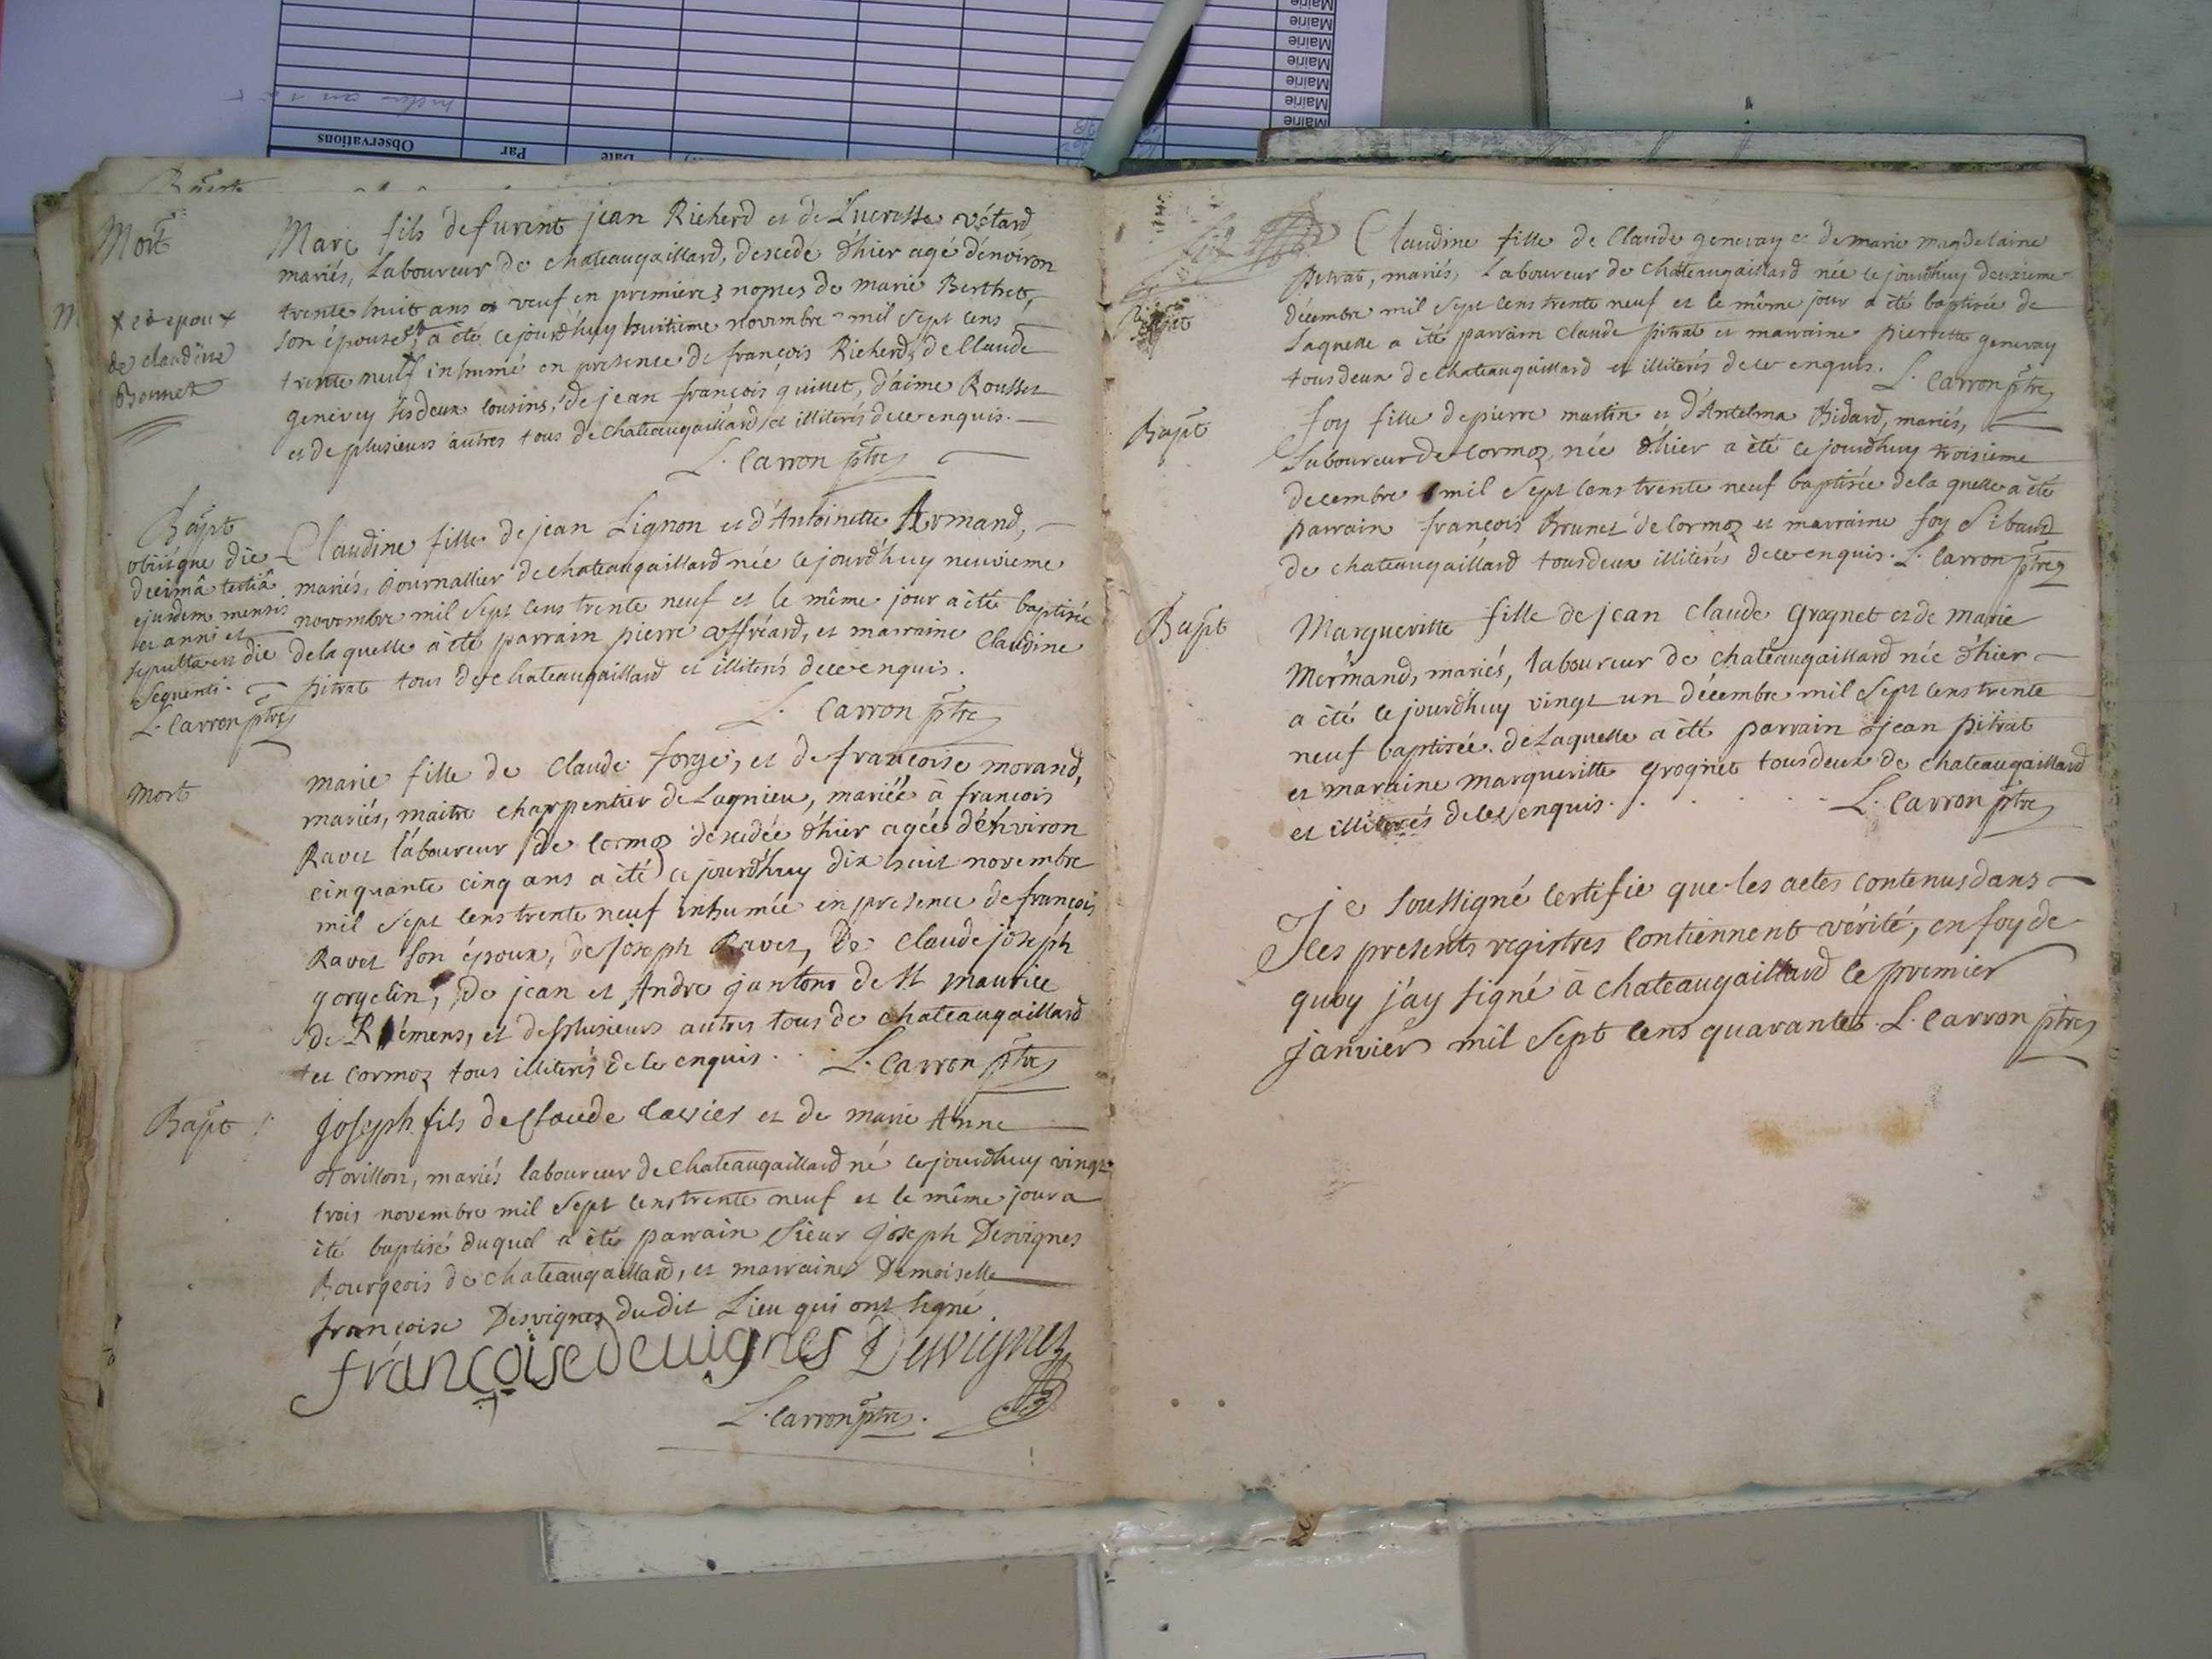 Mairie
Mairie
Mairie
Mairie
Mairie
Mairie
Mairie
Observations
Par
Date
Mort
Marc fils defurent jean Richerd et de Lucresse vétard
mariés, Laboureur de chateaugaillard, descede d'hier agé d'environ
trente huit ans et veuf en premieres nopces de marie Berthet,
son épouse a été cejourd'huy huitieme novembre mil sept cens
trente neuf inhumé en presence de françois Richerd, de Claude
genevey ses deux cousins, de jean françois quinet, d'aime Rousset
et de plusieurs autres tous de chateaugaillard et illiterés de ce enquis.
L. Carron ptre
x et epoux
de claudine
Bonnet
Bapt
obiitque die
decimâ tertiâ
ejusdem mensis
et anni et
sepulta est die
sequenti.
L. Carron ptre
Claudine fille de jean Lignon et d'Antoinette Armand,
mariés, journallier de chateaugaillard née cejourd'huy neuvieme
novembre mil sept cens trente neuf et le même jour a été baptisée
de laquelle a été parrain pierre joffréard, et marraine Claudine
pitrat tous de chateaugaillard et illiterés de ce enquis.
L. Carron ptre
Mort
marie fille de Claude forge, et de françoise morand,
mariés, maitre charpentier de Lagnieu, mariée à francois
Ravet laboureur de cormoz decedée d'hier agée d'environ
cinquante cinq ans a été cejourd'huy dix huit novembre
mil sept cens trente neuf inhumée en presence de françois
Ravet son époux, de joseph Ravet, de Claude joseph
gorgelin, de jean et Andre jantons de st maurice
de Rémens, et de plusieurs autres tous de chateaugaillard
et cormoz tous illiterés de ce enquis. L. Carron ptre
Bapt
joseph fils de Claude cassier et de marie Anne
torillon, mariés laboureur de chateaugaillard né cejourd'huy vingt
trois novembre mil sept cens trente neuf et le même jour a
été baptisé duquel a été parrain Sieur joseph Desvignes
Bourgeois de chateaugaillard, et marraine Demoiselle
françoise Desvignes dudit Lieu qui ont signé
françoise deuignes Desvignes
L. Carron ptre.
Bapt
Claudine fille de Claude genevay et de marie magdelaine
pitrat, mariés, Laboureur de chateaugaillard née cejourdhuy deuxieme
décembre mil sept cens trente neuf et le même jour a été baptisée de
Laquelle a été parrain Claude pitrat et marraine pierrette genevay
tous deux de chateaugaillard et illiterés de ce enquis. L. Carron ptre
Bapt
foy fille de pierre martin et d'Antelma Bidard, mariés,
Laboureur de cormoz née d'hier a été cejourdhuy troisieme
decembre mil sept cens trente neuf baptisée de la quelle a été
parrain françois Brunet de cormoz et marraine foy Sibaud
de chateaugaillard tous deux illiterés de ce enquis. L. Carron ptre
Bapt
Margueritte fille de jean Claude grognet et de marie
Mermand, mariés, laboureur de chateaugaillard née d'hier
a été cejourd'huy vingt un décembre mil sept cens trente
neuf baptisée. de Laquelle a été parrain jean pitrat
et marraine margueritte grognet tous deux de chateaugaillard
et illiterés de ce enquis. L. Carron ptre
Je soussigné certifie que les actes contenus dans
les presents registres contiennent vérité, en foy de
quoy j'ay signé à chateaugaillard le premier
janvier mil sept cens quarante. L. Carron ptre